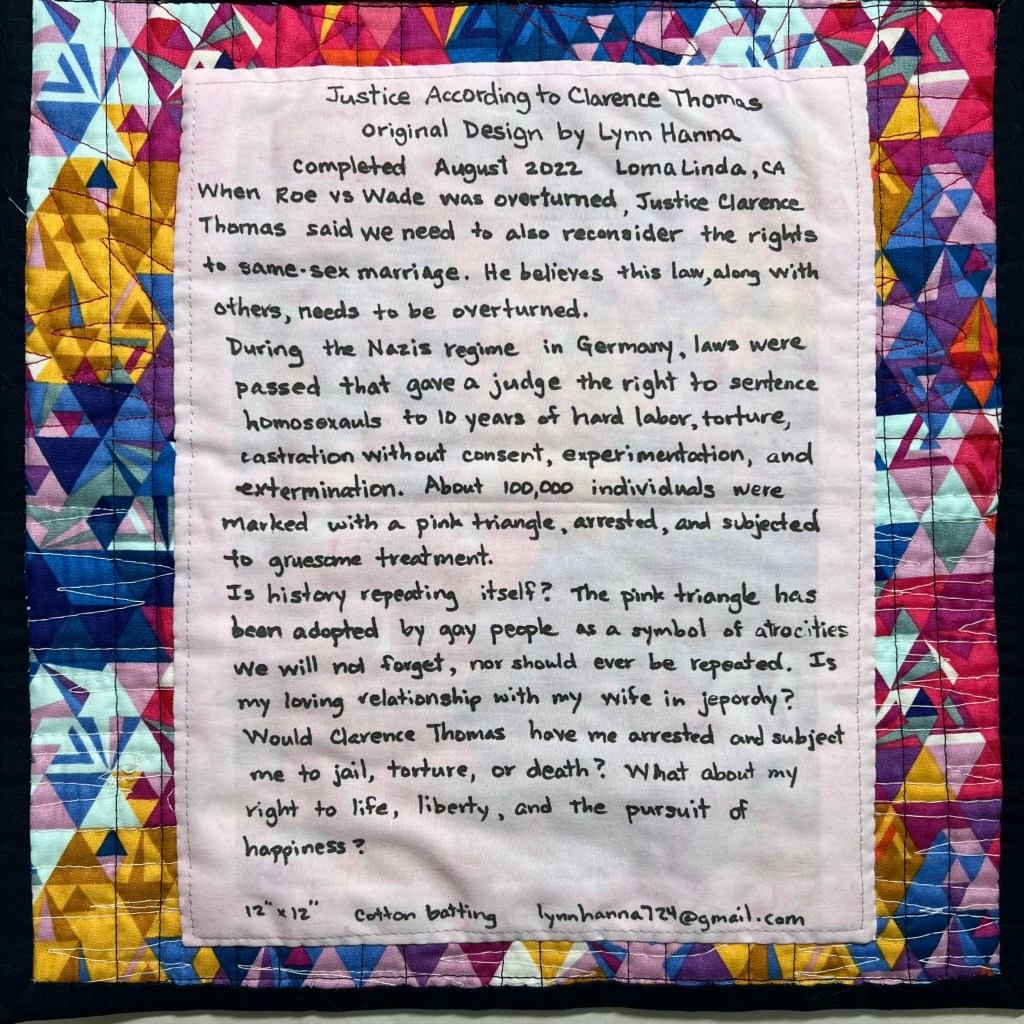 Justice According to Clarence Thomas
Original Design by Lynn Hanna
Completed August 2022 Loma Linda, CA
When Roe vs Wade was overturned, Justice Clarence
Thomas said we need to also reconsider the rights
to same-sex marriage. He believes this law, along with
others, needs to be overturned.
During the Nazis regime in Germany, laws were
passed that gave a judge the right to sentence
homosexauls to 10 years of hard labor, torture,
castration without consent, experimentation, and
extermination. About 100,000 individuals were
marked with a pink triangle, arrested, and subjected
to gruesome treatment.
Is history repeating itself? The pink triangle has
been adopted by gay people as a symbol of atrocities
we will not forget, nor should ever be repeated. Is
my loving relationship with my wife in jepordy?
Would Clarence Thomas have me arrested and subject
me to jail, torture, or death? What about my
right to life, liberty, and the pursuit of
happiness?
12" x 12" cotton batting lynnhanna724@gmail.com